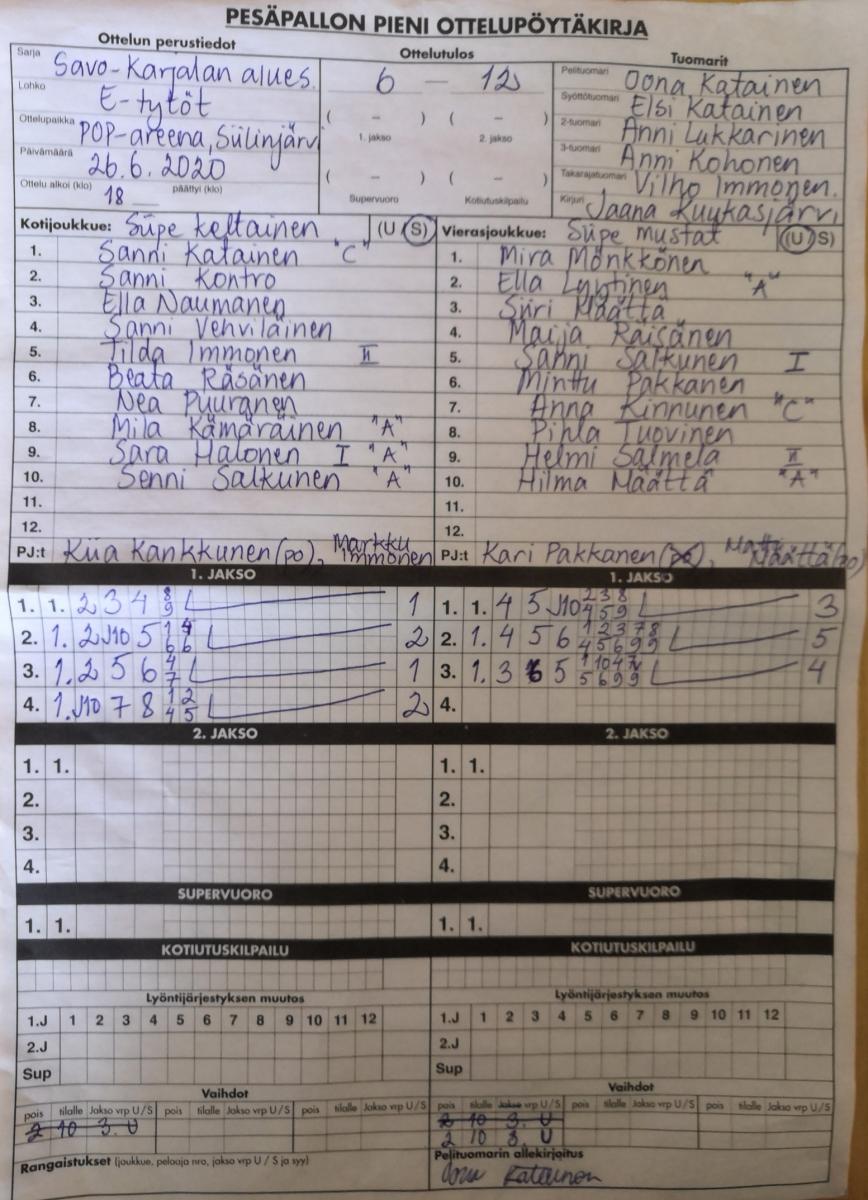 PESÄPALLON PIENI OTTELUPÖYTÄKIRJA
Ottelun perustiedot
Sarja Savo-Karjalan alues.
Lohko E-tytöt
Ottelupaikka POP-areena, Siilinjärvi
Päivämäärä 26.6.2020
Ottelu alkoi (klo) 18 päättyi (klo)
Ottelutulos
6 – 12
( – ) ( – )
1. jakso 2. jakso
( – ) ( – )
Supervuoro Kotiutuskilpailu
Tuomarit
Pelituomari Oona Katainen
Syöttötuomari Elsi Katainen
2-tuomari Anni Lukkarinen
3-tuomari Anni Kohonen
Takarajatuomari Vilho Immonen.
Kirjuri Jaana Kuukasjärvi
Kotijoukkue: Siipe keltainen (U S)
1. Sanni Katainen "C"
2. Sanni Kontro
3. Ella Naumanen
4. Sanni Vehviläinen
5. Tilda Immonen II
6. Beata Räsänen
7. Nea Puuranen
8. Mila Kämäräinen "A"
9. Sara Halonen I "A"
10. Senni Salkunen "A"
11.
12.
PJ:t Kiia Kankkunen (po), Markku Immonen
Vierasjoukkue: Siipe mustat (U S)
1. Mira Mönkkönen
2. Ella Lyytinen "A"
3. Siiri Määttä
4. Maija Räisänen
5. Sanni Salkunen I
6. Minttu Pakkanen
7. Anna Kinnunen "C"
8. Pihla Tuovinen
9. Helmi Salmela II
10. Hilma Määttä "A"
11.
12.
PJ:t Kari Pakkanen (po), Matti Määttä (po)
1. JAKSO
1. 1. 2 3 4 8 9 1
2. 1. 2 J10 5 1 4 6 6 2
3. 1. 2 5 6 4 7 1
4. 1. J10 7 8 1 2 4 5 2
1. JAKSO
1. 1. 4 5 J10 2 3 8 4 5 9 3
2. 1. 4 5 6 1 2 3 7 8 4 5 6 9 9 5
3. 1. 3 5 1 10 4 5 6 9 9 4
4.
2. JAKSO
1. 1.
2.
3.
4.
2. JAKSO
1. 1.
2.
3.
4.
SUPERVUORO
1. 1.
SUPERVUORO
1. 1.
KOTIUTUSKILPAILU
KOTIUTUSKILPAILU
Lyöntijärjestyksen muutos
1.J 1 2 3 4 5 6 7 8 9 10 11 12
2.J
Sup
Lyöntijärjestyksen muutos
1.J 1 2 3 4 5 6 7 8 9 10 11 12
2.J
Sup
Vaihdot
pois tilalle Jakso vrp U/S pois tilalle Jakso vrp U/S pois tilalle Jakso vrp U/S
2 10 3. U
Vaihdot
pois tilalle Jakso vrp U/S pois tilalle Jakso vrp U/S pois tilalle Jakso vrp U/S
2 10 3. U
2 10 3. U
Rangaistukset (joukkue, pelaaja nro, jakso vrp U / S ja syy)
Pelituomarin allekirjoitus
Oona Katainen